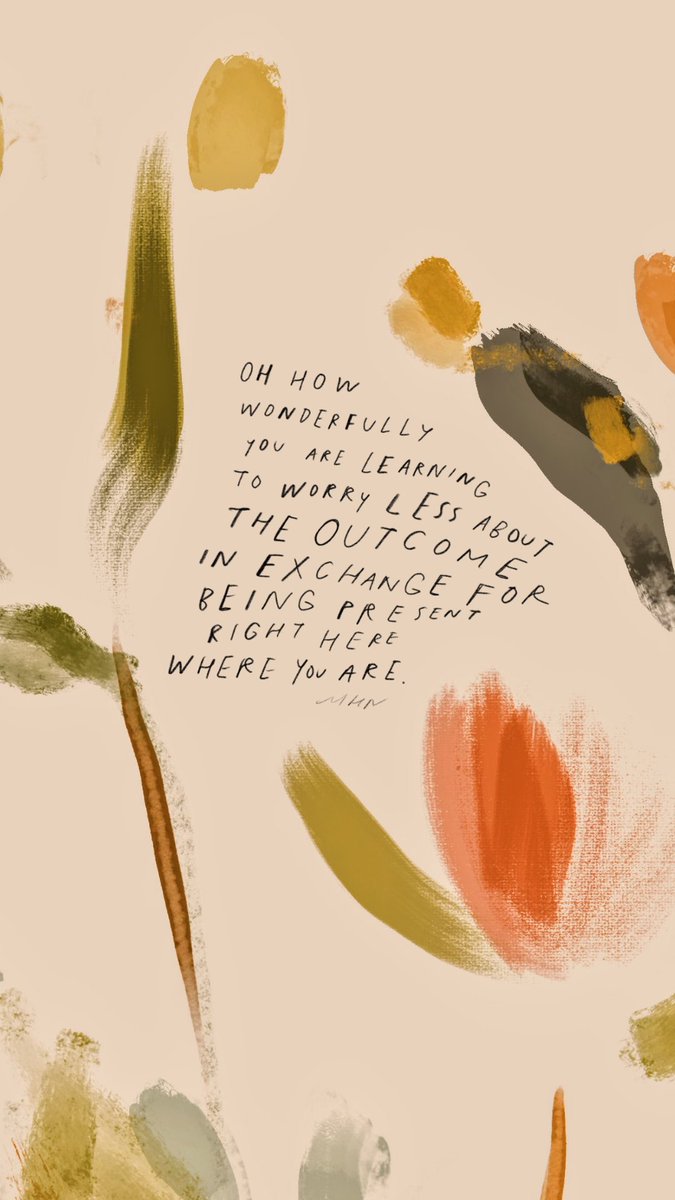 OH HOW
WONDERFULLY
YOU ARE LEARNING
TO WORRY LESS ABOUT
THE OUTCOME
IN EXCHANGE FOR
BEING PRESENT
RIGHT HERE
WHERE YOU ARE.
MHN